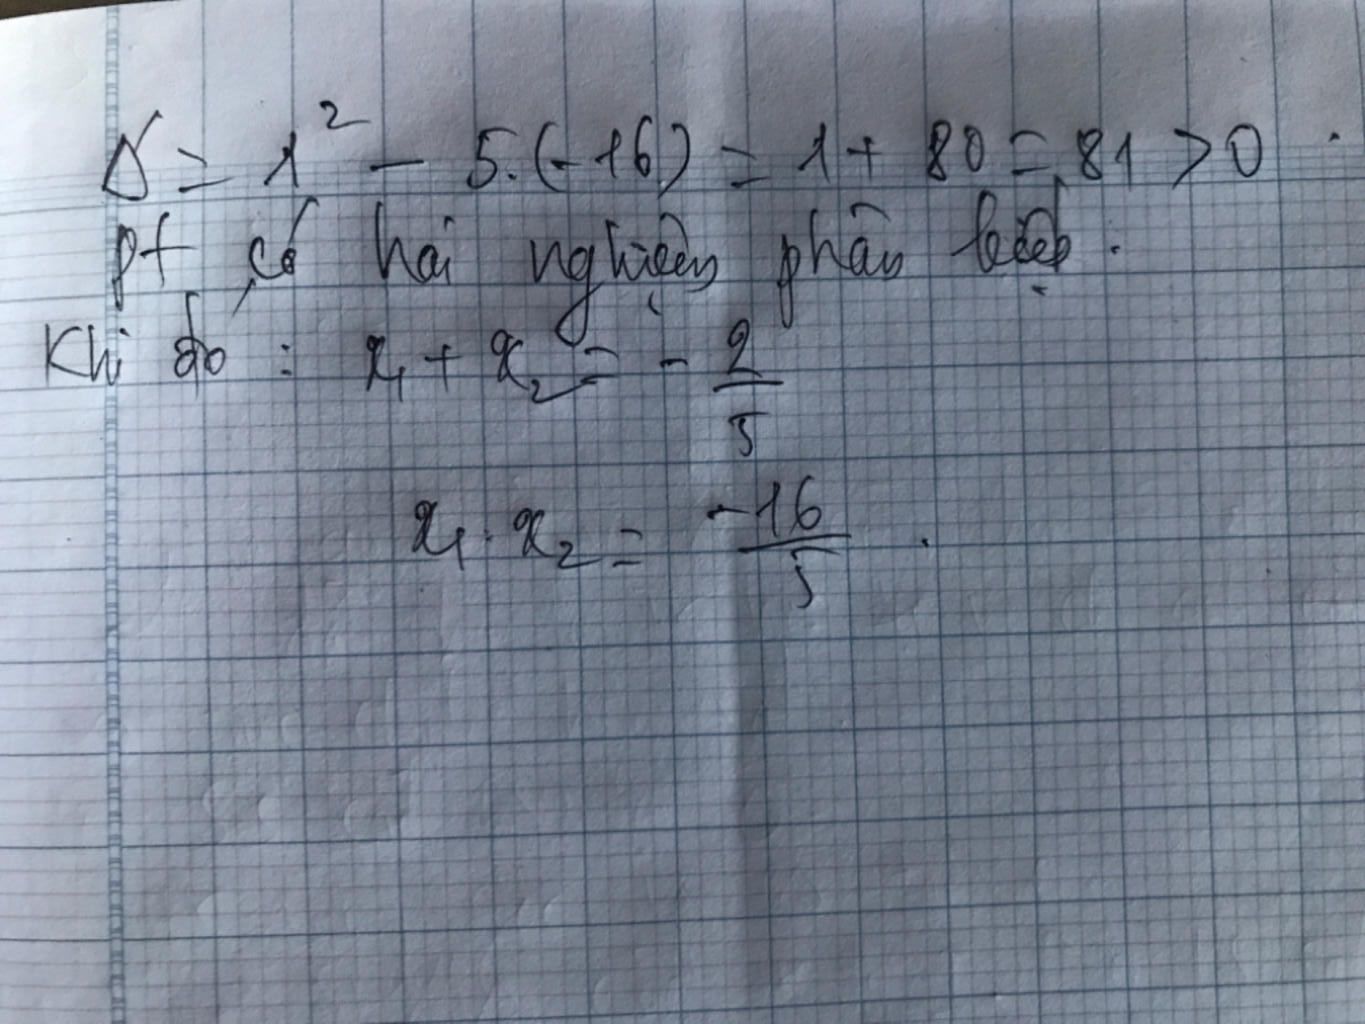 Δ = 1² - 5.(-16) = 1 + 80 = 81 > 0.
pt có hai nghiệm phân biệt.
Khi đó : x₁ + x₂ = - 2/5
x₁ . x₂ = -16/5 .